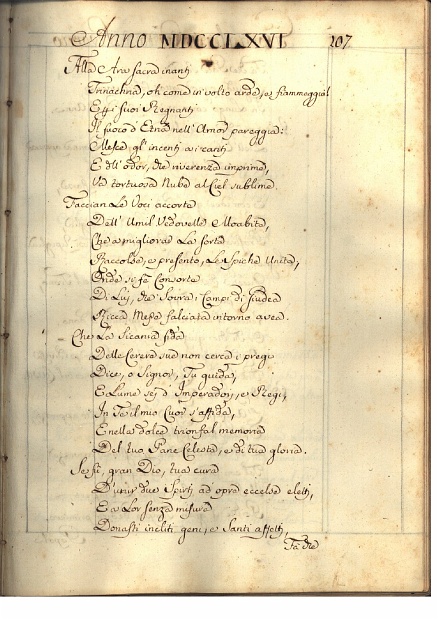 Anno MDCCLXVI 207
Alla Ara sacra inanti
Trinachria, oh come in volto arde, e fiammeggia!
E i suoi Regnanti
Il fuoco d'Etna nell'Amor pareggia:
Mesce gl'incenti
E dell'odor, che riverenza imprime,
Va tortuosa Nube al Ciel sublime.
Taccian Le Voci accorte
Dell'Umil Vedovella Moabita,
Che a migliorar La sorte
Raccolse, e presentò, Le Spiche Unita,
Onde si fè Consorte
Di Lui, che Sovra i Campi di Giudea
Ricca Messe falciata intorno avea.
Che La Sicania fida
Delle Cerere sue non cerca i pregi
Dice, o Signor, Tu guida,
E Lume sei d'Imperadori, e Regi,
In Te il mio Cuor s'affida,
E nella dolce trionfal memoria
Del tuo Pane Celeste, e di tua gloria.
Se fù, gran Dio, tua cura
D'unir due Spirti ad opre eccelse eletti,
E a Lor senza misura
Donasti incliti geni, e Santi affetti,
Fà che